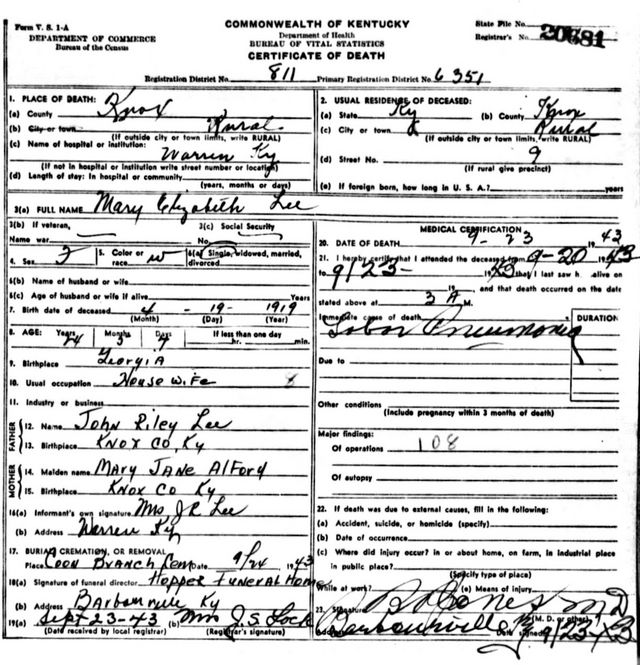 Form V. S. 1-A
DEPARTMENT OF COMMERCE
Bureau of the Census
COMMONWEALTH OF KENTUCKY
Department of Health
BUREAU OF VITAL STATISTICS
CERTIFICATE OF DEATH
State File No.
Registrar's No. 20681
Registration District No. 811 Primary Registration District No. 6351
1. PLACE OF DEATH:
(a) County Knox
(b) City or town Rural
(If outside city or town limits, write RURAL)
(c) Name of hospital or institution:
Warren Ky
(If not in hospital or institution write street number or location)
(d) Length of stay: In hospital or community
(years, months or days)
2. USUAL RESIDENCE OF DECEASED:
(a) State Ky (b) County Knox
(c) City or town Rural
(If outside city or town limits, write RURAL)
(d) Street No. 9
(If rural give precinct)
(e) If foreign born, how long in U. S. A.? years
3(a) FULL NAME Mary Elizabeth Lee
3(b) If veteran,
Name war
3(c) Social Security
No.
4. Sex F
5. Color or race W
6(a) Single, widowed, married, divorced
6(b) Name of husband or wife
6(c) Age of husband or wife if alive Years
7. Birth date of deceased 4 - 19 - 1919
(Month) (Day) (Year)
8. AGE: Years Months Days If less than one day
24 5 4 hr. min.
9. Birthplace Georgia
10. Usual occupation House wife 8
11. Industry or business
FATHER
12. Name John Riley Lee
13. Birthplace Knox Co, Ky
MOTHER
14. Maiden name Mary Jane Alford
15. Birthplace Knox Co Ky
16(a) Informant's own signature Mrs J R Lee
(b) Address Warren Ky
17. BURIAL, CREMATION, OR REMOVAL
Place Coon Branch Cem Date 9/24 1943
18(a) Signature of funeral director Hopper Funeral Home
(b) Address Barbourville Ky
19(a) Sept 23-43 (b) Mrs J. S. Lock
(Date received by local registrar) (Registrar's signature)
MEDICAL CERTIFICATION
20. DATE OF DEATH 9-23 1943
21. I hereby certify that I attended the deceased from 9-20 1943
to 9/23- 1943 that I last saw h alive on
, and that death occurred on the date
stated above at 3 A M.
Immediate cause of death DURATION
Lobar Pneumonia
Due to
Other conditions
(Include pregnancy within 3 months of death)
Major findings:
Of operations 108
Of autopsy
22. If death was due to external causes, fill in the following:
(a) Accident, suicide, or homicide (specify)
(b) Date of occurrence
(c) Where did injury occur? in or about home, on farm, in industrial place
in public place?
(Specify type of place)
While at work? (e) Means of injury
23. Signature Jones MD
(M. D. or other)
Address Barbourville Ky Date signed 9/23-43